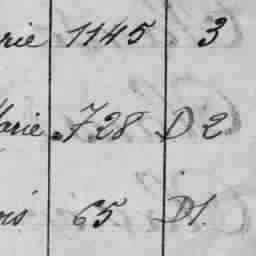 rie 1145 3
Marie 728 D 2
ois 65 D1.